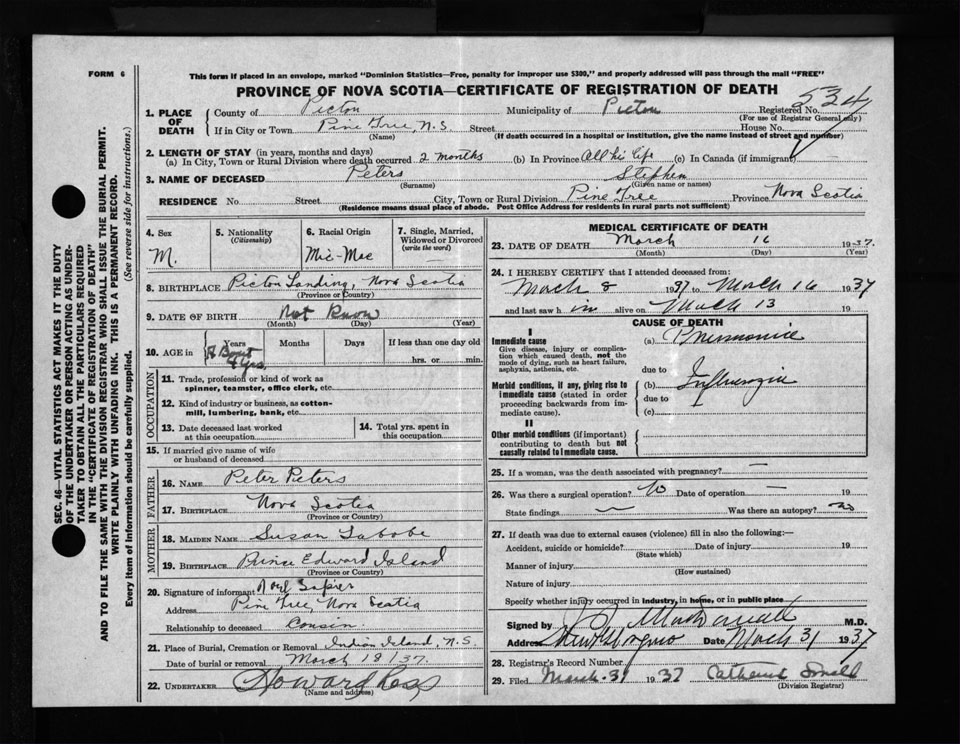 FORM 6
This form if placed in an envelope, marked "Dominion Statistics—Free, penalty for improper use $300," and properly addressed will pass through the mail "FREE"
PROVINCE OF NOVA SCOTIA—CERTIFICATE OF REGISTRATION OF DEATH
SEC. 46—VITAL STATISTICS ACT MAKES IT THE DUTY
OF THE UNDERTAKER OR PERSON ACTING AS UNDER-
TAKER TO OBTAIN ALL THE PARTICULARS REQUIRED
IN THE "CERTIFICATE OF REGISTRATION OF DEATH"
AND TO FILE THE SAME WITH THE DIVISION REGISTRAR WHO SHALL ISSUE THE BURIAL PERMIT.
WRITE PLAINLY WITH UNFADING INK. THIS IS A PERMANENT RECORD.
Every item of Information should be carefully supplied. (See reverse side for instructions.)
1. PLACE OF DEATH
County of Picton Municipality of Picton Registered No. 534
(For use of Registrar General only)
If in City or Town Pine Tree, N.S. Street House No.
(Name) (If death occurred in a hospital or institution, give the name instead of street and number)
2. LENGTH OF STAY (in years, months and days)
(a) In City, Town or Rural Division where death occurred 2 months (b) In Province All his life (c) In Canada (if immigrant) —
3. NAME OF DECEASED Peters Stephen
(Surname) (Given name or names)
RESIDENCE No. Street City, Town or Rural Division Pine Tree Province Nova Scotia
(Residence means usual place of abode. Post Office Address for residents in rural parts not sufficient)
4. Sex
M.
5. Nationality
(Citizenship)
6. Racial Origin
Mic-Mac
7. Single, Married, Widowed or Divorced
(write the word)
—
8. BIRTHPLACE Picton Landing, Nova Scotia
(Province or Country)
9. DATE OF BIRTH Not Known
(Month) (Day) (Year)
10. AGE in
Years Months Days If less than one day old
About 4 yrs. hrs. or min.
OCCUPATION
11. Trade, profession or kind of work as
spinner, teamster, office clerk, etc.
12. Kind of industry or business, as cotton-
mill, lumbering, bank, etc.
13. Date deceased last worked
at this occupation
14. Total yrs. spent in
this occupation
15. If married give name of wife
or husband of deceased
FATHER
16. NAME Peter Pieters
17. BIRTHPLACE Nova Scotia
(Province or Country)
MOTHER
18. MAIDEN NAME Susan Labobe
19. BIRTHPLACE Prince Edward Island
(Province or Country)
20. Signature of informant Noel Sapier
Address Pine Tree, Nova Scotia
Relationship to deceased Cousin
21. Place of Burial, Cremation or Removal Indian Island, N.S.
Date of burial or removal March 18/37.
22. UNDERTAKER Howard Ross
(Name and address)
MEDICAL CERTIFICATE OF DEATH
23. DATE OF DEATH March 16 1937.
(Month) (Day) (Year)
24. I HEREBY CERTIFY that I attended deceased from:
March 8 1937 to March 16 1937
and last saw h im alive on March 13 19
CAUSE OF DEATH
I
Immediate cause
Give disease, injury or complica-
tion which caused death, not the
mode of dying, such as heart failure,
asphyxia, asthenia, etc.
(a) Pneumonia
due to
Morbid conditions, if any, giving rise to
immediate cause (stated in order
proceeding backwards from im-
mediate cause).
(b) Influenzia
due to
(c)
II
Other morbid conditions (if important)
contributing to death but not
causally related to immediate cause.
25. If a woman, was the death associated with pregnancy? —
26. Was there a surgical operation? No Date of operation — 19
State findings — Was there an autopsy? no
27. If death was due to external causes (violence) fill in also the following:—
Accident, suicide or homicide? Date of injury 19
(State which)
Manner of injury
(How sustained)
Nature of injury
Specify whether injury occurred in industry, in home, or in public place
Signed by M.D.
Address Date March 31 1937
28. Registrar's Record Number
29. Filed March-31 1937 Catherine
(Division Registrar)